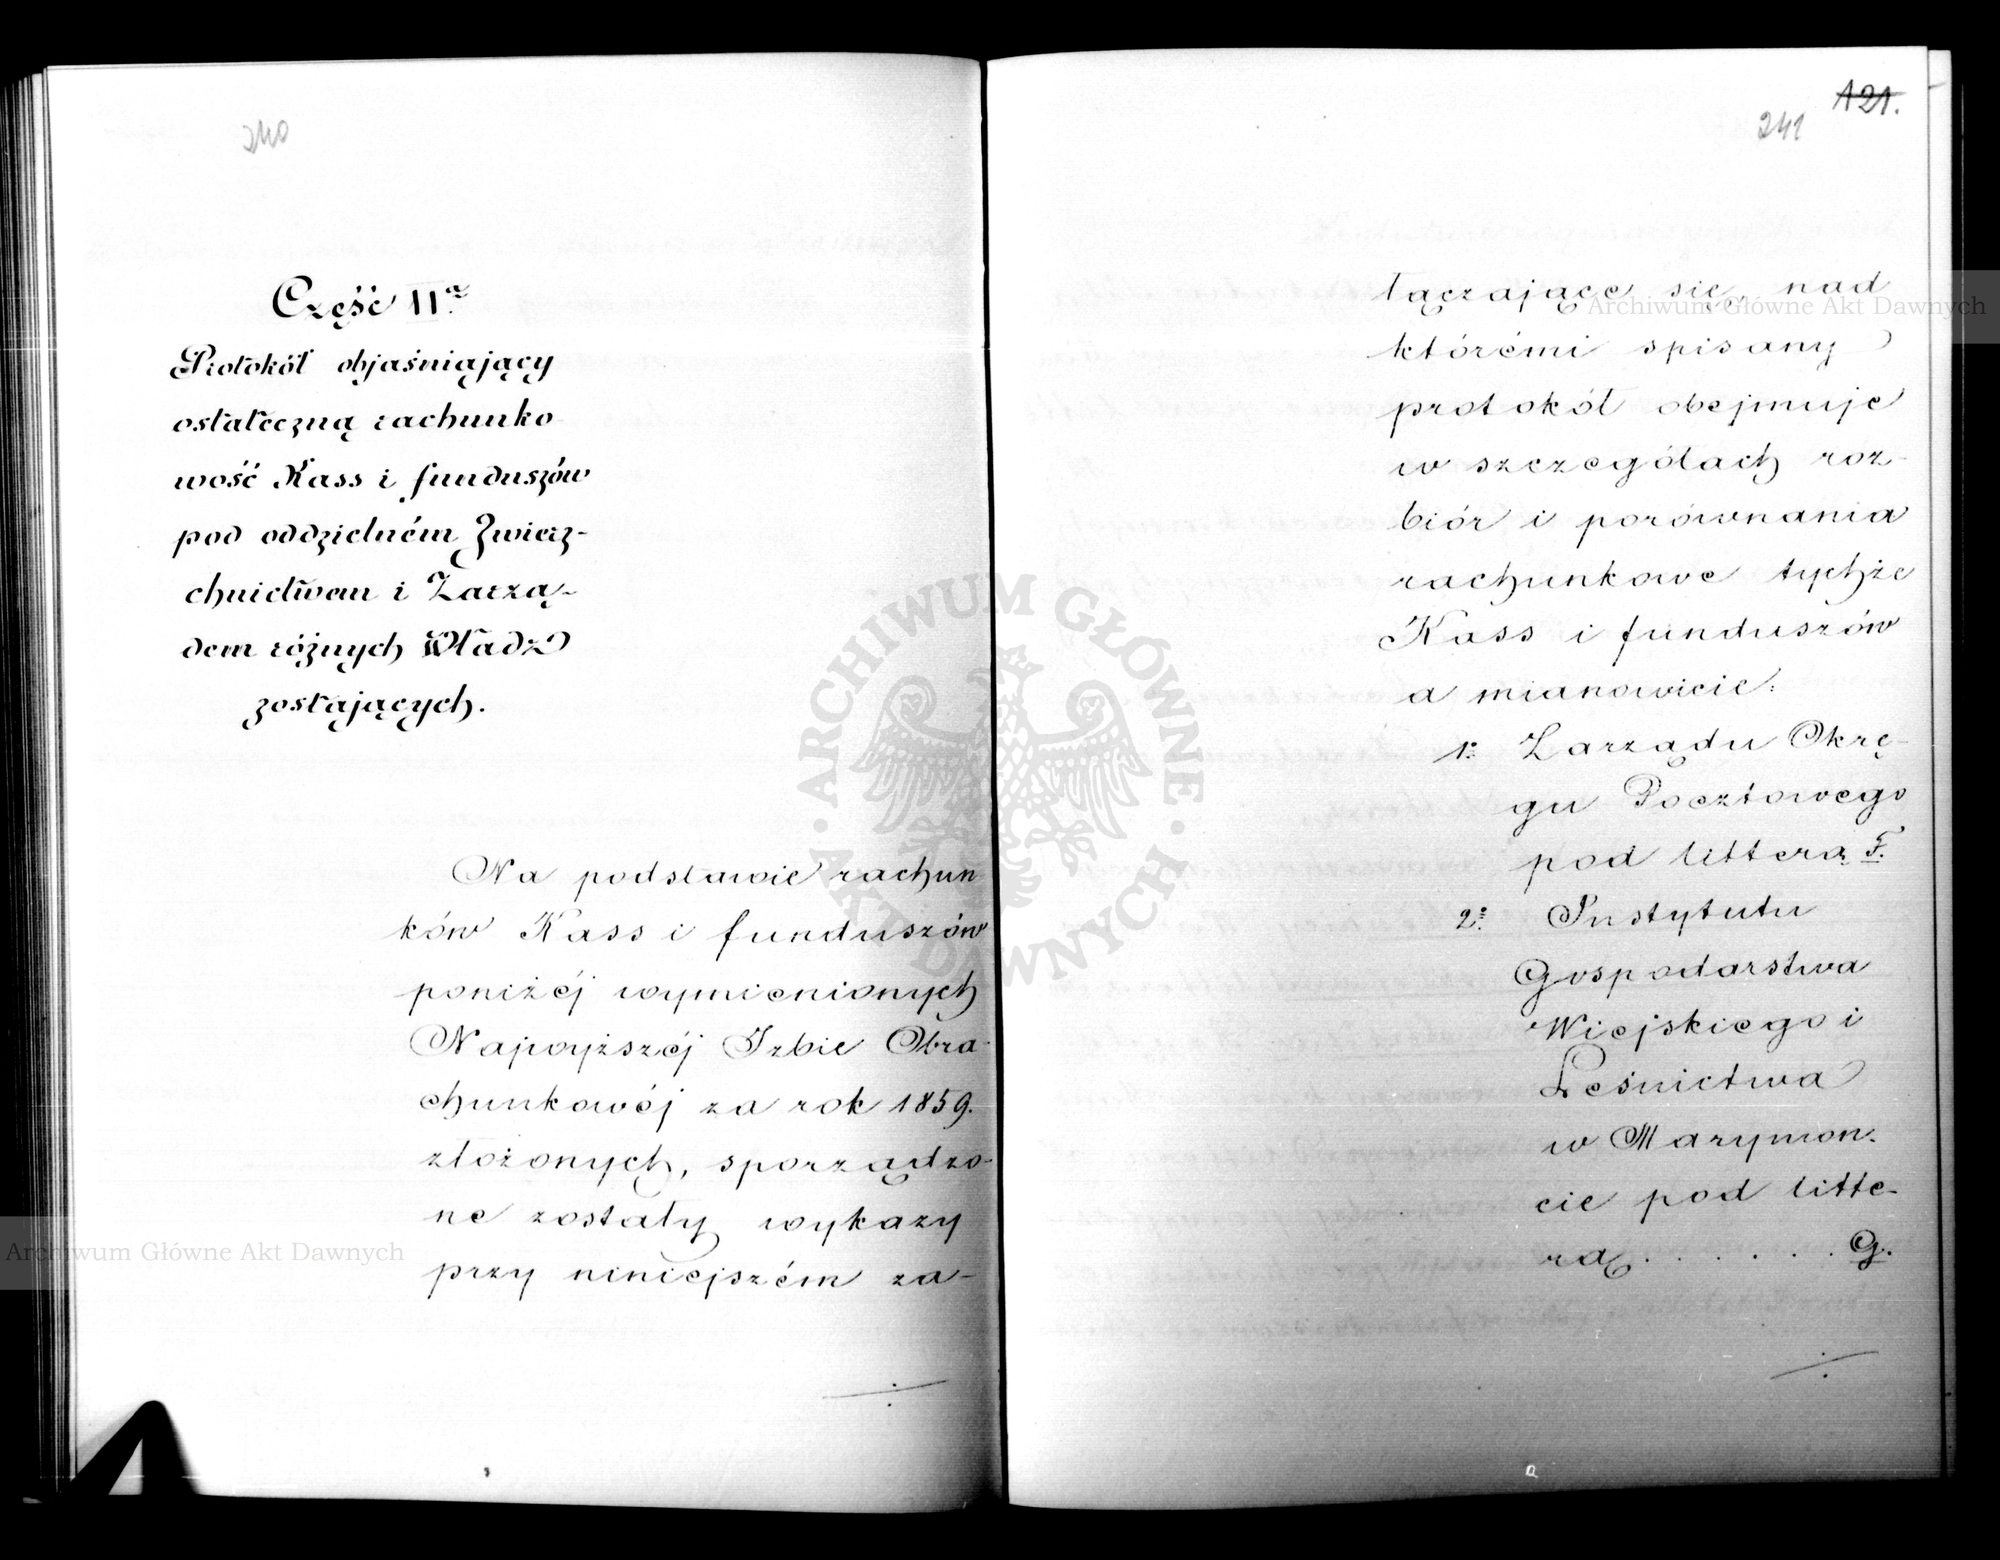 240
Część IIa
Protokół objaśniający
ostateczną rachunko
wość Kass i funduszów
pod oddzielném Zwierz-
chnictwem i Zarzą-
dem różnych Władz
zostających.
Na podstawie rachun
ków Kass i funduszów
poniżéj wymienionych
Najwyższéj Izbie Obra-
chunkowéj za rok 1859.
złożonych, sporządzo-
ne zostały wykazy
przy niniejszém za-
121.
241
łączające się, nad
którémi spisany
protokół obejmuje
w szczegółach roz-
biór i porównania
rachunkowe tychże
Kass i funduszów
a mianowicie:
1. Zarządu Okrę-
gu Pocztowego
pod litterą F.
2. Instytutu
Gospodarstwa
Wiejskiego i
Leśnictwa
w Marymon-
cie pod litte-
rą . . . . . . G.
Archiwum Główne Akt Dawnych
ARCHIWUM GŁÓWNE
AKT DAWNYCH
Archiwum Główne Akt Dawnych